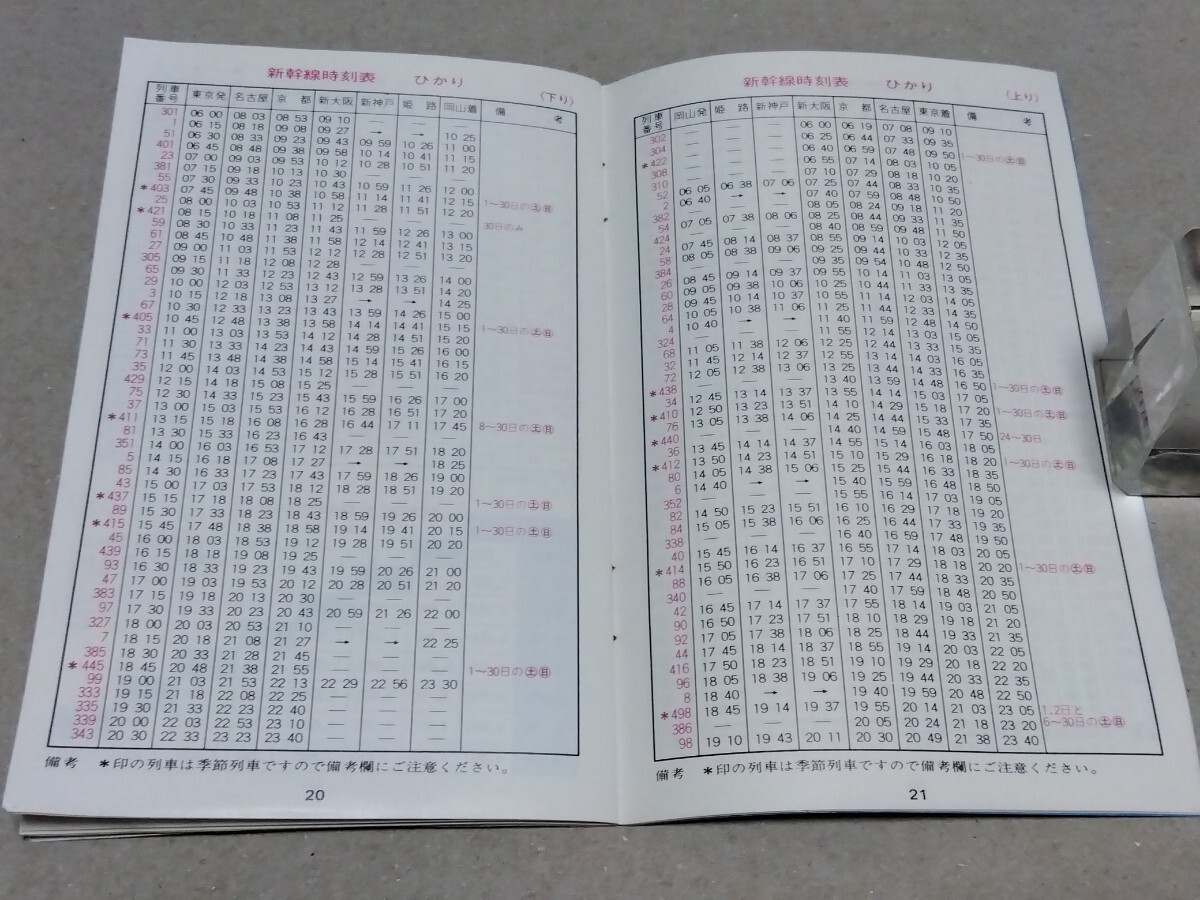 新幹線時刻表 ひかり
(下り)
列車番号 東京発 名古屋 京都 新大阪 新神戸 姫路 岡山着 備考
301 06 00 08 03 08 53 09 10 — — —
1 06 15 08 18 09 08 09 27 → → 10 25
51 06 30 08 33 09 23 09 43 09 59 10 26 11 00
401 06 45 08 48 09 38 09 58 10 14 10 41 11 15
23 07 00 09 03 09 53 10 12 10 28 10 51 11 20
381 07 15 09 18 10 13 10 30 — — —
55 07 30 09 33 10 23 10 43 10 59 11 26 12 00
*403 07 45 09 48 10 38 10 58 11 14 11 41 12 15 1〜30日の㊏㊐
25 08 00 10 03 10 53 11 12 11 28 11 51 12 20
*421 08 15 10 18 11 08 11 25 — — — 30日のみ
59 08 30 10 33 11 23 11 43 11 59 12 26 13 00
61 08 45 10 48 11 38 11 58 12 14 12 41 13 15
27 09 00 11 03 11 53 12 12 12 28 12 51 13 20
305 09 15 11 18 12 08 12 28 — — —
65 09 30 11 33 12 23 12 43 12 59 13 26 14 00
29 10 00 12 03 12 53 13 12 13 28 13 51 14 20
3 10 15 12 18 13 08 13 27 → → 14 25
67 10 30 12 33 13 23 13 43 13 59 14 26 15 00
*405 10 45 12 48 13 38 13 58 14 14 14 41 15 15 1〜30日の㊏㊐
33 11 00 13 03 13 53 14 12 14 28 14 51 15 20
71 11 30 13 33 14 23 14 43 14 59 15 26 16 00
73 11 45 13 48 14 38 14 58 15 14 15 41 16 15
35 12 00 14 03 14 53 15 12 15 28 15 51 16 20
429 12 15 14 18 15 08 15 25 — — —
75 12 30 14 33 15 23 15 43 15 59 16 26 17 00
37 13 00 15 03 15 53 16 12 16 28 16 51 17 20
*411 13 15 15 18 16 08 16 28 16 44 17 11 17 45 8〜30日の㊏㊐
81 13 30 15 33 16 23 16 43 — — —
351 14 00 16 03 16 53 17 12 17 28 17 51 18 20
5 14 15 16 18 17 08 17 27 → → 18 25
85 14 30 16 33 17 23 17 43 17 59 18 26 19 00
43 15 00 17 03 17 53 18 12 18 28 18 51 19 20
*437 15 15 17 18 18 08 18 25 — — — 1〜30日の㊏㊐
89 15 30 17 33 18 23 18 43 18 59 19 26 20 00
*415 15 45 17 48 18 38 18 58 19 14 19 41 20 15 1〜30日の㊏㊐
45 16 00 18 03 18 53 19 12 19 28 19 51 20 20
439 16 15 18 18 19 08 19 25 — — —
93 16 30 18 33 19 23 19 43 19 59 20 26 21 00
47 17 00 19 03 19 53 20 12 20 28 20 51 21 20
383 17 15 19 18 20 13 20 30 — — —
97 17 30 19 33 20 23 20 43 20 59 21 26 22 00
327 18 00 20 03 20 53 21 10 — — —
7 18 15 20 18 21 08 21 27 → → 22 25
385 18 30 20 33 21 28 21 45 — — —
*445 18 45 20 48 21 38 21 55 — — — 1〜30日の㊏㊐
99 19 00 21 03 21 53 22 13 22 29 22 56 23 30
333 19 15 21 18 22 08 22 25 — — —
335 19 30 21 33 22 23 22 40 — — —
339 20 00 22 03 22 53 23 10 — — —
343 20 30 22 33 23 23 23 40 — — —
備考 *印の列車は季節列車ですので備考欄にご注意ください。
20
新幹線時刻表 ひかり
(上り)
列車番号 岡山発 姫路 新神戸 新大阪 京都 名古屋 東京着 備考
302 — — — 06 00 06 19 07 08 09 10
304 — — — 06 25 06 44 07 33 09 35
*422 — — — 06 40 06 59 07 48 09 50 1〜30日の㊏㊐
308 — — — 06 55 07 14 08 03 10 05
310 — — — 07 10 07 29 08 18 10 20
52 06 05 06 38 07 06 07 25 07 44 08 33 10 35
2 06 40 → → 07 40 07 59 08 48 10 50
382 — — — 08 05 08 24 09 18 11 20
54 07 05 07 38 08 06 08 25 08 44 09 33 11 35
424 — — — 08 40 08 59 09 48 11 50
24 07 45 08 14 08 37 08 55 09 14 10 03 12 05
58 08 05 08 38 09 06 09 25 09 44 10 33 12 35
384 — — — 09 35 09 54 10 48 12 50
26 08 45 09 14 09 37 09 55 10 14 11 03 13 05
60 09 05 09 38 10 06 10 25 10 44 11 33 13 35
28 09 45 10 14 10 37 10 55 11 14 12 03 14 05
64 10 05 10 38 11 06 11 25 11 44 12 33 14 35
4 10 40 → → 11 40 11 59 12 48 14 50
324 — — — 11 55 12 14 13 03 15 05
68 11 05 11 38 12 06 12 25 12 44 13 33 15 35
32 11 45 12 14 12 37 12 55 13 14 14 03 16 05
72 12 05 12 38 13 06 13 25 13 44 14 33 16 35
*438 — — — 13 40 13 59 14 48 16 50 1〜30日の㊏㊐
34 12 45 13 14 13 37 13 55 14 14 15 03 17 05
*410 12 50 13 23 13 51 14 10 14 29 15 18 17 20 1〜30日の㊏㊐
76 13 05 13 38 14 06 14 25 14 44 15 33 17 35
*440 — — — 14 40 14 59 15 48 17 50 24〜30日
36 13 45 14 14 14 37 14 55 15 14 16 03 18 05
*412 13 50 14 23 14 51 15 10 15 29 16 18 18 20 1〜30日の㊏㊐
80 14 05 14 38 15 06 15 25 15 44 16 33 18 35
6 14 40 → → 15 40 15 59 16 48 18 50
352 — — — 15 55 16 14 17 03 19 05
82 14 50 15 23 15 51 16 10 16 29 17 18 19 20
84 15 05 15 38 16 06 16 25 16 44 17 33 19 35
338 — — — 16 40 16 59 17 48 19 50
40 15 45 16 14 16 37 16 55 17 14 18 03 20 05
*414 15 50 16 23 16 51 17 10 17 29 18 18 20 20 1〜30日の㊏㊐
88 16 05 16 38 17 06 17 25 17 44 18 33 20 35
340 — — — 17 40 17 59 18 48 20 50
42 16 45 17 14 17 37 17 55 18 14 19 03 21 05
90 16 50 17 23 17 51 18 10 18 29 19 18 21 20
92 17 05 17 38 18 06 18 25 18 44 19 33 21 35
44 17 45 18 14 18 37 18 55 19 14 20 03 22 05
416 17 50 18 23 18 51 19 10 19 29 20 18 22 20
96 18 05 18 38 19 06 19 25 19 44 20 33 22 35
8 18 40 → → 19 40 19 59 20 48 22 50
*498 18 45 19 14 19 37 19 55 20 14 21 03 23 05 1.2日と6〜30日の㊏㊐
386 — — — 20 05 20 24 21 18 23 20
98 19 10 19 43 20 11 20 30 20 49 21 38 23 40
備考 *印の列車は季節列車ですので備考欄にご注意ください。
21